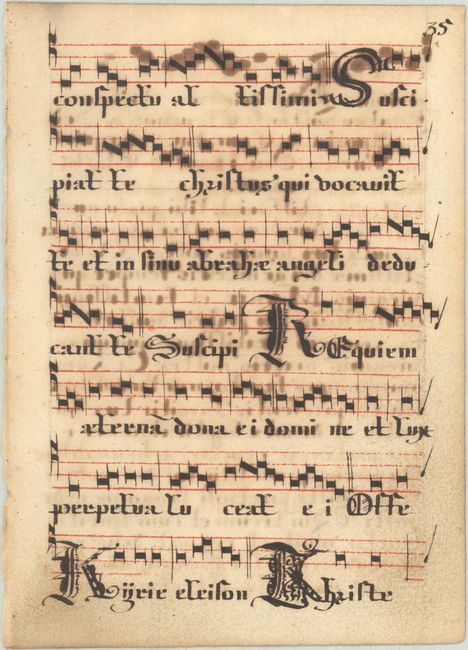 35
conspectu al tissimi Susci
piat te christus qui vocavit
te et in sinu abrahæ angeli dedu
cant te Suscipi REquiem
æternã dona ei domi ne et lux
perpetua lu ceat e i Offe
Kyrie eleison Christe